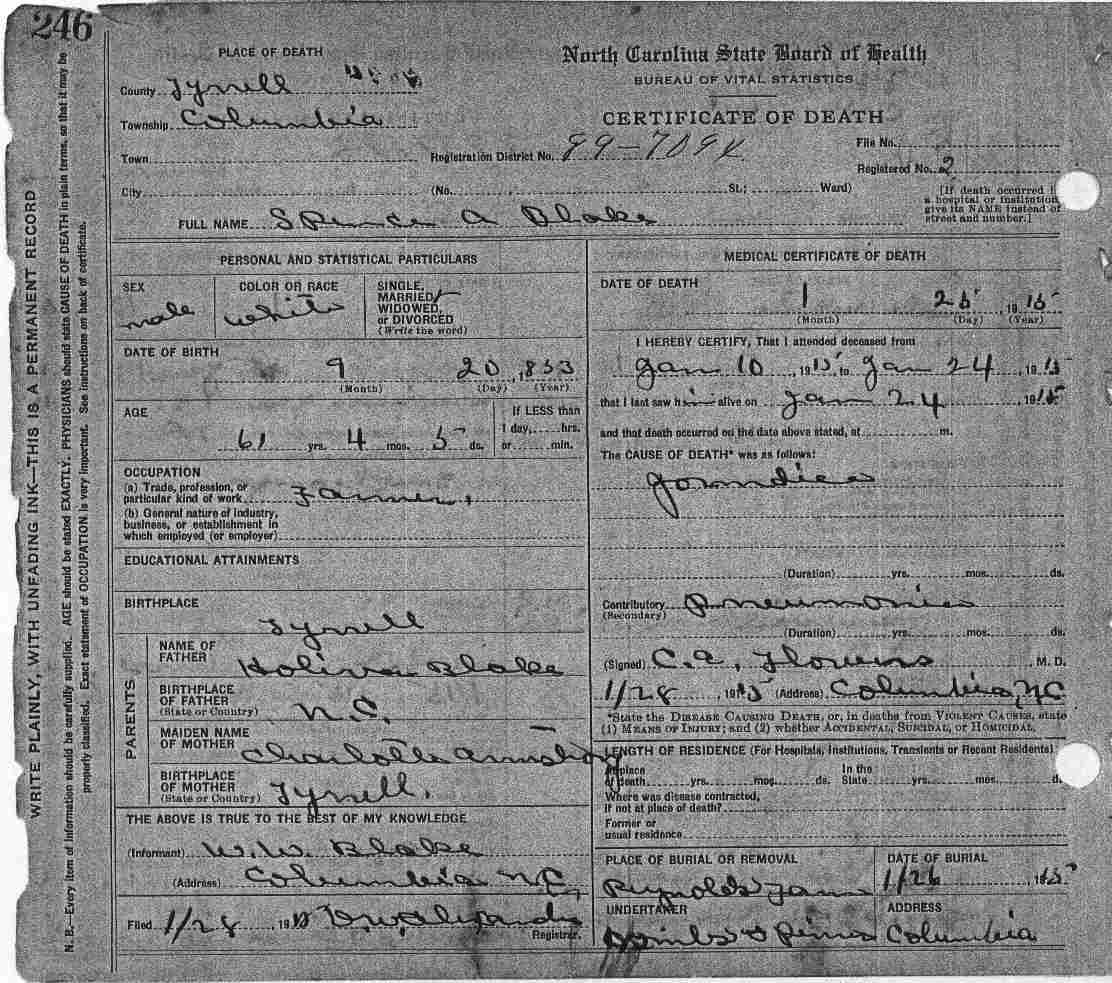 246
WRITE PLAINLY, WITH UNFADING INK—THIS IS A PERMANENT RECORD
N. B.—Every item of information should be carefully supplied. AGE should be stated EXACTLY. PHYSICIANS should state CAUSE OF DEATH in plain terms, so that it may be
properly classified. Exact statement of OCCUPATION is very important. See instructions on back of certificate.
PLACE OF DEATH
County Tyrrell
Township Columbia
Town
City (No. St.; Ward)
North Carolina State Board of Health
BUREAU OF VITAL STATISTICS
CERTIFICATE OF DEATH
Registration District No. 89-709
File No.
Registered No. 2
[If death occurred in
a hospital or institution,
give its NAME instead of
street and number.]
FULL NAME Spence A Blake
PERSONAL AND STATISTICAL PARTICULARS
SEX
male
COLOR OR RACE
white
SINGLE,
MARRIED,
WIDOWED,
or DIVORCED
(Write the word)
DATE OF BIRTH
9 20, 1853
(Month) (Day) (Year)
AGE
61 yrs. 4 mos. 5 ds.
If LESS than
1 day, hrs.
or min.
OCCUPATION
(a) Trade, profession, or
particular kind of work Farmer,
(b) General nature of industry,
business, or establishment in
which employed (or employer)
EDUCATIONAL ATTAINMENTS
BIRTHPLACE
Tyrrell
PARENTS
NAME OF
FATHER
Blake
BIRTHPLACE
OF FATHER
(State or Country) N.C.
MAIDEN NAME
OF MOTHER
Charlotte Armstrong
BIRTHPLACE
OF MOTHER
(State or Country) Tyrrell.
THE ABOVE IS TRUE TO THE BEST OF MY KNOWLEDGE
(Informant) W.W. Blake
(Address) Columbia NC
Filed 1/28, 191
Registrar.
MEDICAL CERTIFICATE OF DEATH
DATE OF DEATH
1 25 1915
(Month) (Day) (Year)
I HEREBY CERTIFY, That I attended deceased from
Jan 10, 1915, to Jan 24, 1915
that I last saw him alive on Jan 24 1915
and that death occurred on the date above stated, at m.
The CAUSE OF DEATH* was as follows:
(Duration) yrs. mos. ds.
Contributory Pneumonia
(Secondary)
(Duration) yrs. mos. ds.
(Signed) C.A. Flowers, M. D.
1/28, 1915 (Address) Columbia, NC
*State the DISEASE CAUSING DEATH, or, in deaths from VIOLENT CAUSES, state
(1) MEANS OF INJURY; and (2) whether ACCIDENTAL, SUICIDAL, or HOMICIDAL.
LENGTH OF RESIDENCE (For Hospitals, Institutions, Transients or Recent Residents)
At place
of death yrs. mos. ds. In the
State yrs. mos. ds.
Where was disease contracted,
If not at place of death?
Former or
usual residence
PLACE OF BURIAL OR REMOVAL
Reynolds Farm
DATE OF BURIAL
1/26 1915
UNDERTAKER
ADDRESS
Columbia